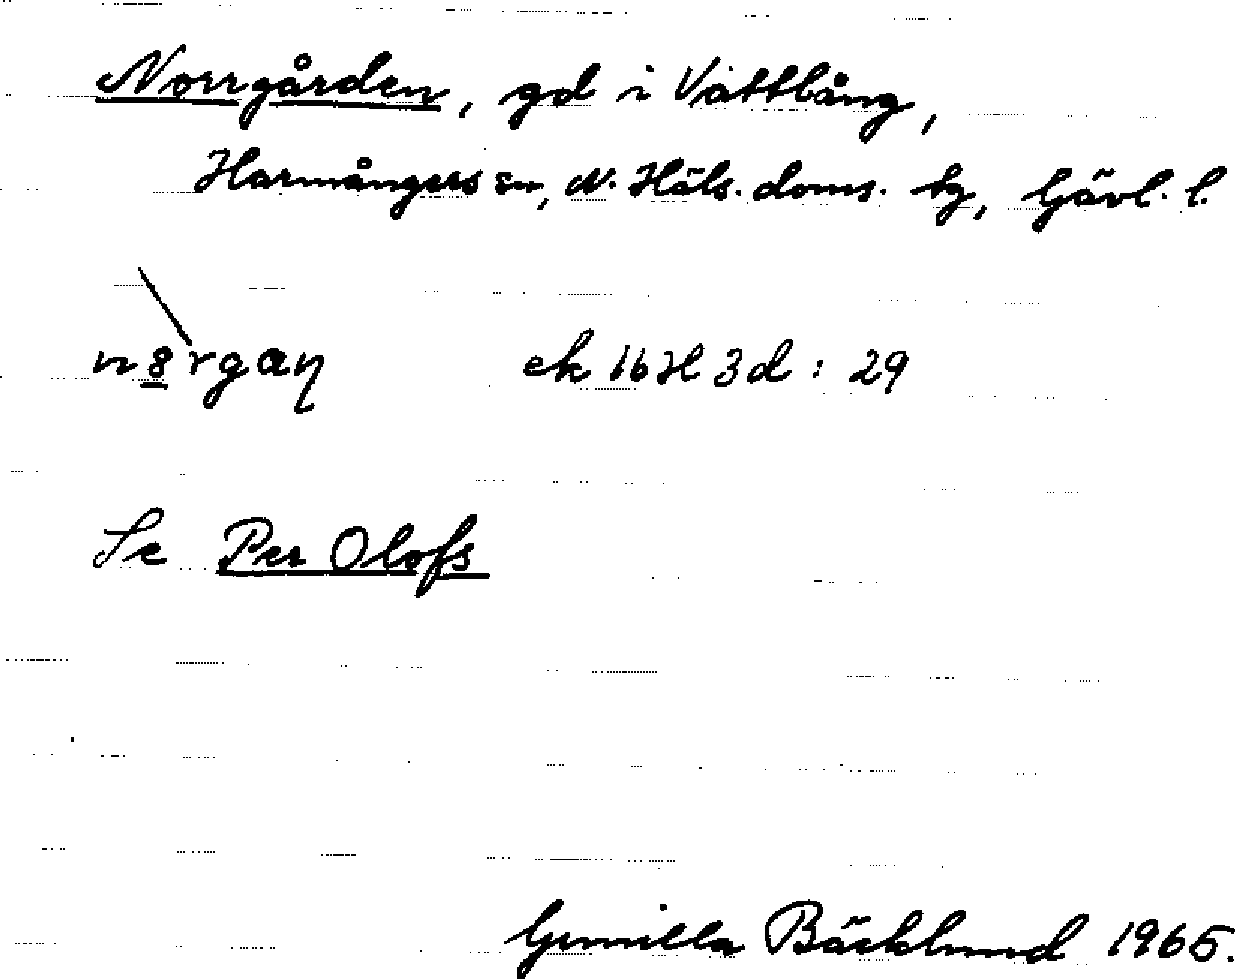 Norrgården, gd i Vattlång,
Harmångers sn, N. Häls. doms. hg, Gävl. l.
n8rgaŋ ek 16H 3d : 29
Se Per Olofs
Gunilla Bäcklund 1965.